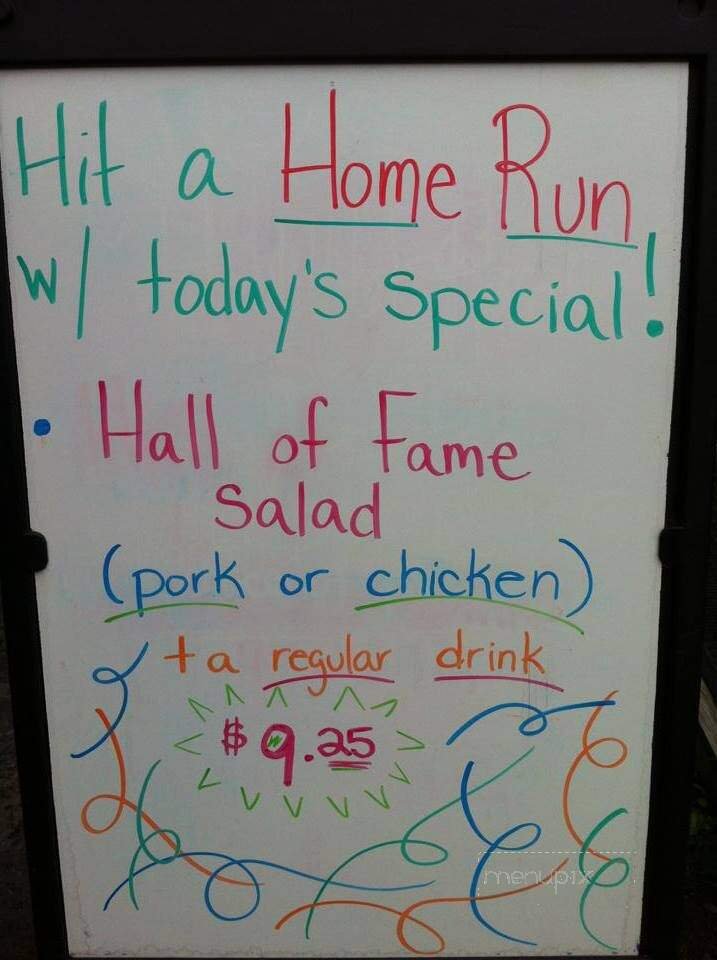 Hit a Home Run
w/ today's special!
• Hall of Fame
salad
(pork or chicken)
+ a regular drink
$9.25
menupix